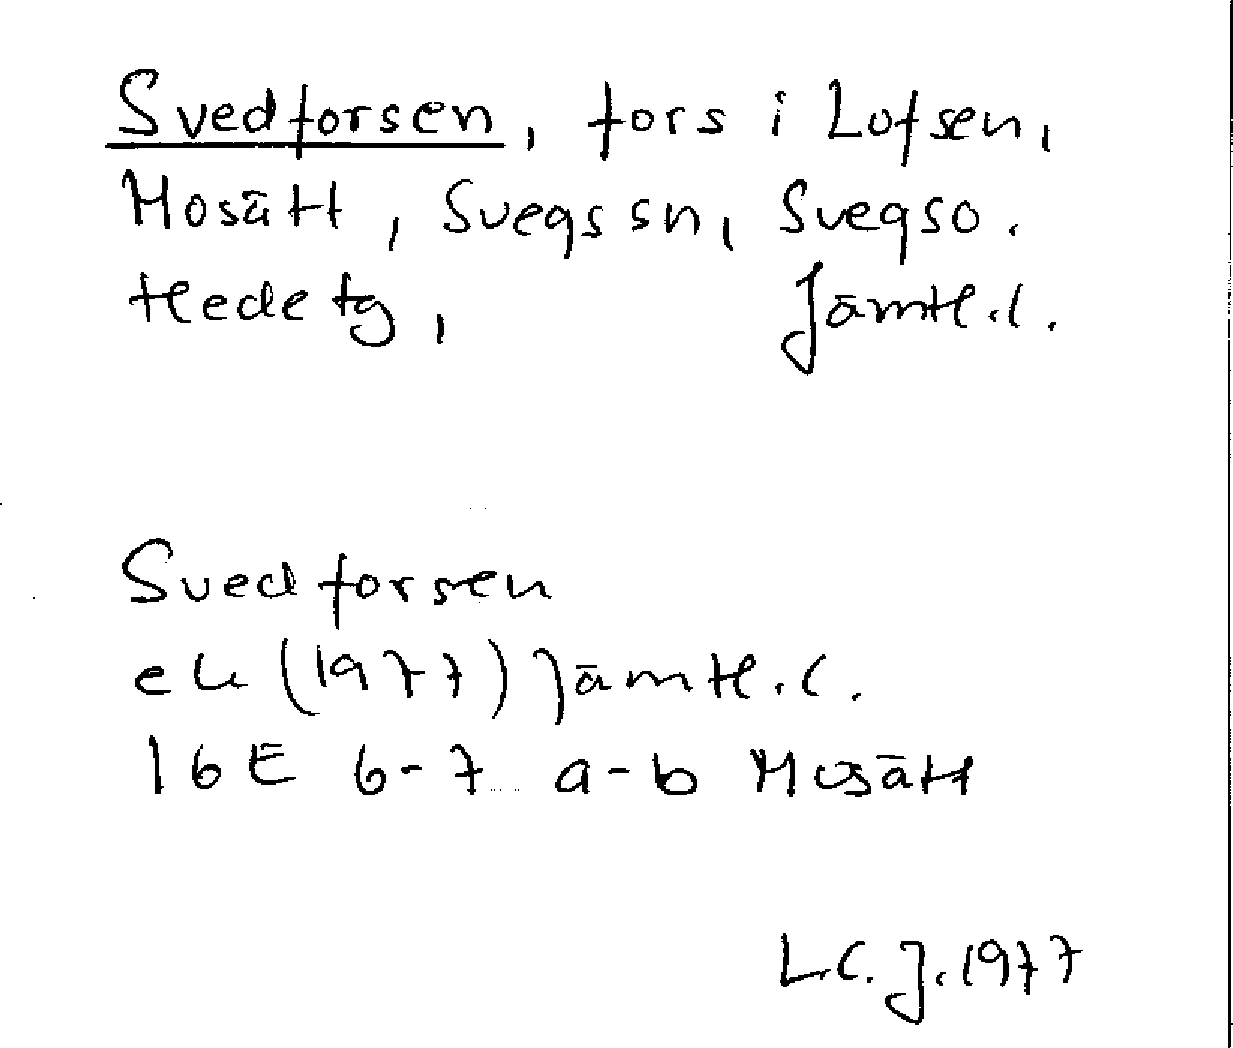 Svedforsen, fors i Lofsen,
Mosätt, Svegs sn, Svegso.
Hede tg, Jämtl.l.
Svedforsen
ek (1977) Jämtl.l.
16E 6-7 a-b Mosätt
L.C.J. 1977